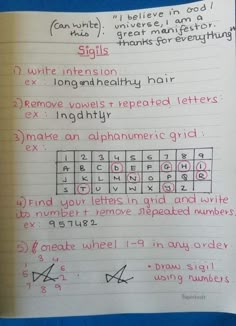 (can write this).
"I believe in God / universe, I am a great manifestor. thanks for everything"
Sigils
1) write intension:
ex: long and healthy hair
2) Remove vowels + repeated letters:
ex: lngdhtyr
3) make an alphanumeric grid:
ex:
1 2 3 4 5 6 7 8 9
A B C D E F G H I
J K L M N O P Q R
S T U V W X Y Z
4) Find your letters in grid and write
its number + remove repeated numbers:
ex: 957482
5) create wheel 1-9 in any order
3 4
1 6
5 2
7 8 9
• Draw sigil
using numbers